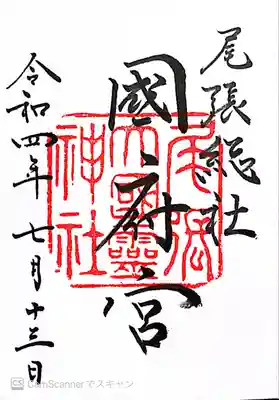 尾張総社
國府宮
尾張大國霊神社
令和四年七月十三日
CS CamScannerでスキャン